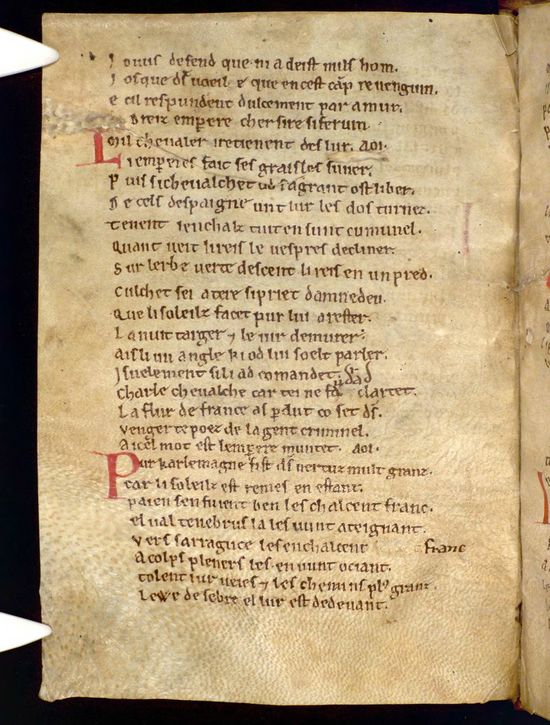 Jo vus defend que ni adeist nuls hom.
Josque ds voeil e que en cest cāp revengum.
E cil respundent dulcement par amur.
Dreiz emꝑere cher sire si ferum
Mil chevaler i retienent des lur. aoi.
Li emꝑeres fait ses graisles suner.
Puis si chevalchet od sa grant ost li ber.
De cels despaigne unt lur les dos turnez.
Tenent lenchalz tuit en sunt cumunel.
Quant veit li reis le vespres decliner.
Sur lerbe verte descent li reis en un pred.
Culchet sei a tere si priet damnedeu.
Que li soleilz facet pur lui arester.
La nuit targer ⁊ le iur demurer.
Ais li un angle ki od lui soelt parler.
Isnelement si li ad comandet.
Charle chevalche car tei ne clartet.
La flur de france as ꝑdut co set ds.
Venger te poez de la gent criminel.
A icel mot est lemꝑere muntet. aoi.
Pur karlemagne fist ds vertuz mult granz.
Car li soleilz est remes en estant.
Paien sen fuient ben les chalcent franc.
El val tenebrus la les vunt ateignant.
Vers sarraguce les enchalcent franc
A colps pleners les en vunt ociant.
Tolent lur veies ⁊ les chemins plꝰ granz.
Lewe de sebre el lur est dedevant.